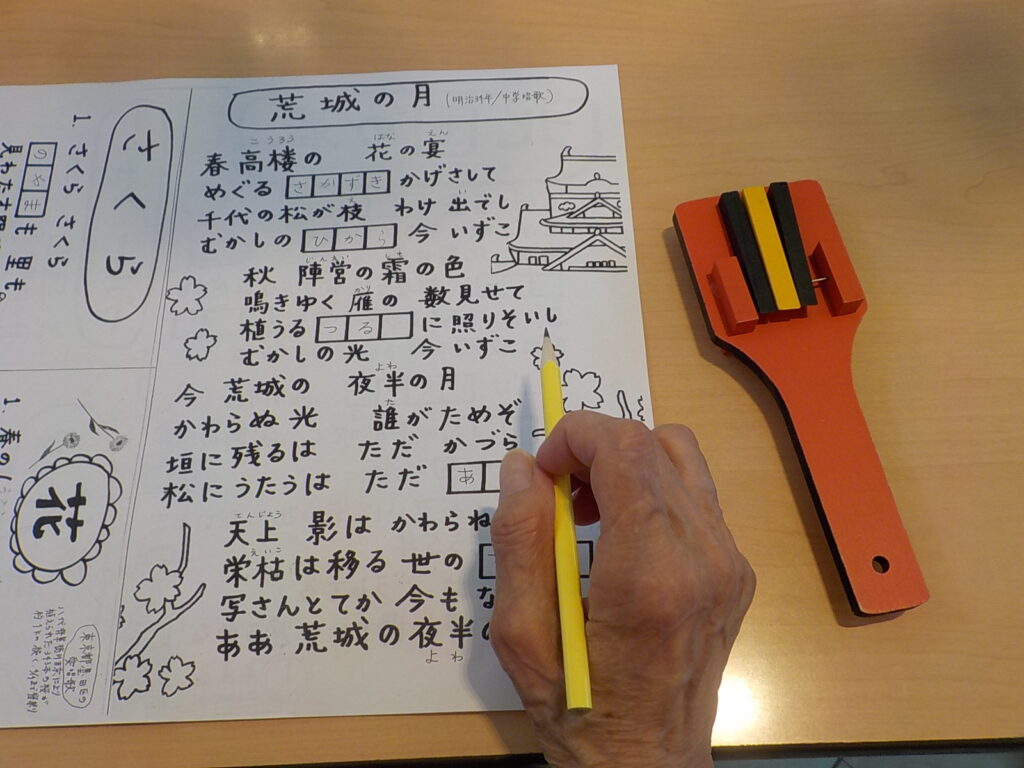 荒城の月 (明治34年/中学唱歌)
こうろう はな えん
春高楼の 花の宴
めぐる さかずき かげさして
千代の松が枝 わけ出でし
むかしの ひから 今 いずこ
じんえい しも
秋 陣営の霜の色
かり
鳴きゆく 雁の 数見せて
植うる つる に照りそいし
むかしの光 今 いずこ
よわ
今 荒城の 夜半の月
た
かわらぬ光 誰がためぞ
垣に残るは ただ かづら
松にうたうは ただ あ
てんじょう
天上 影は かわらね
えいこ
栄枯は移る 世の
写さんとてか 今も な
ああ 荒城の夜半の
よわ
さくら
1. さくら さくら
のやまも 里も
見わたす
花
1. 春の
東京都墨田区の
愛唱歌